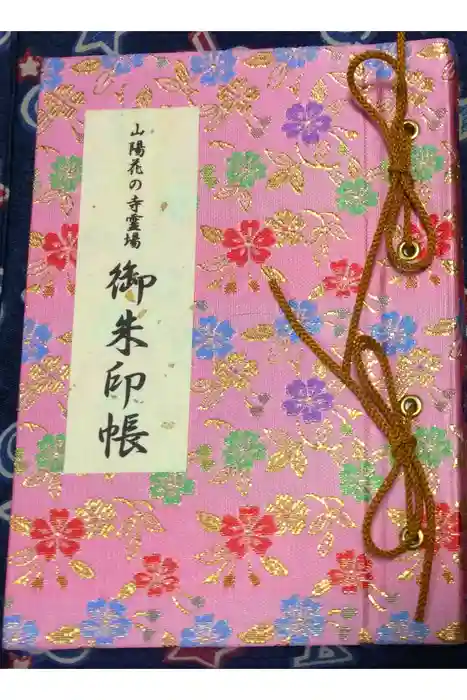 山陽花の寺霊場
御朱印帳